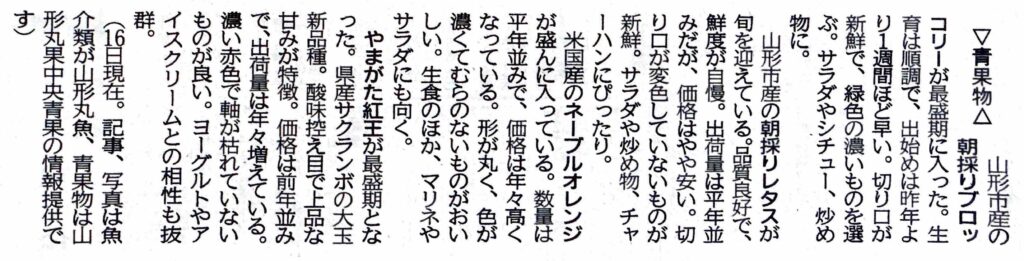 ▽青果物△　　山形市産の
　　　　　　朝採りブロッ
コリーが最盛期に入った。生
育は順調で、出始めは昨年よ
り1週間ほど早い。切り口が
新鮮で、緑色の濃いものを選
ぶ。サラダやシチュー、炒め
物に。
　山形市産の朝採りレタスが
旬を迎えている。品質良好で、
鮮度が自慢。出荷量は平年並
みだが、価格はやや安い。切
り口が変色していないものが
新鮮。サラダや炒め物、チャ
ーハンにぴったり。
　米国産のネーブルオレンジ
が盛んに入っている。数量は
平年並みで、価格は年々高く
なっている。形が丸く、色が
濃くてむらのないものがおい
しい。生食のほか、マリネや
サラダにも向く。
　やまがた紅王が最盛期とな
った。県産サクランボの大玉
新品種。酸味控え目で上品な
甘みが特徴。価格は前年並み
で、出荷量は年々増えている。
濃い赤色で軸が枯れていない
ものが良い。ヨーグルトやア
イスクリームとの相性も抜
群。
　（16日現在。記事、写真は魚
介類が山形丸魚、青果物は山
形丸果中央青果の情報提供で
す）